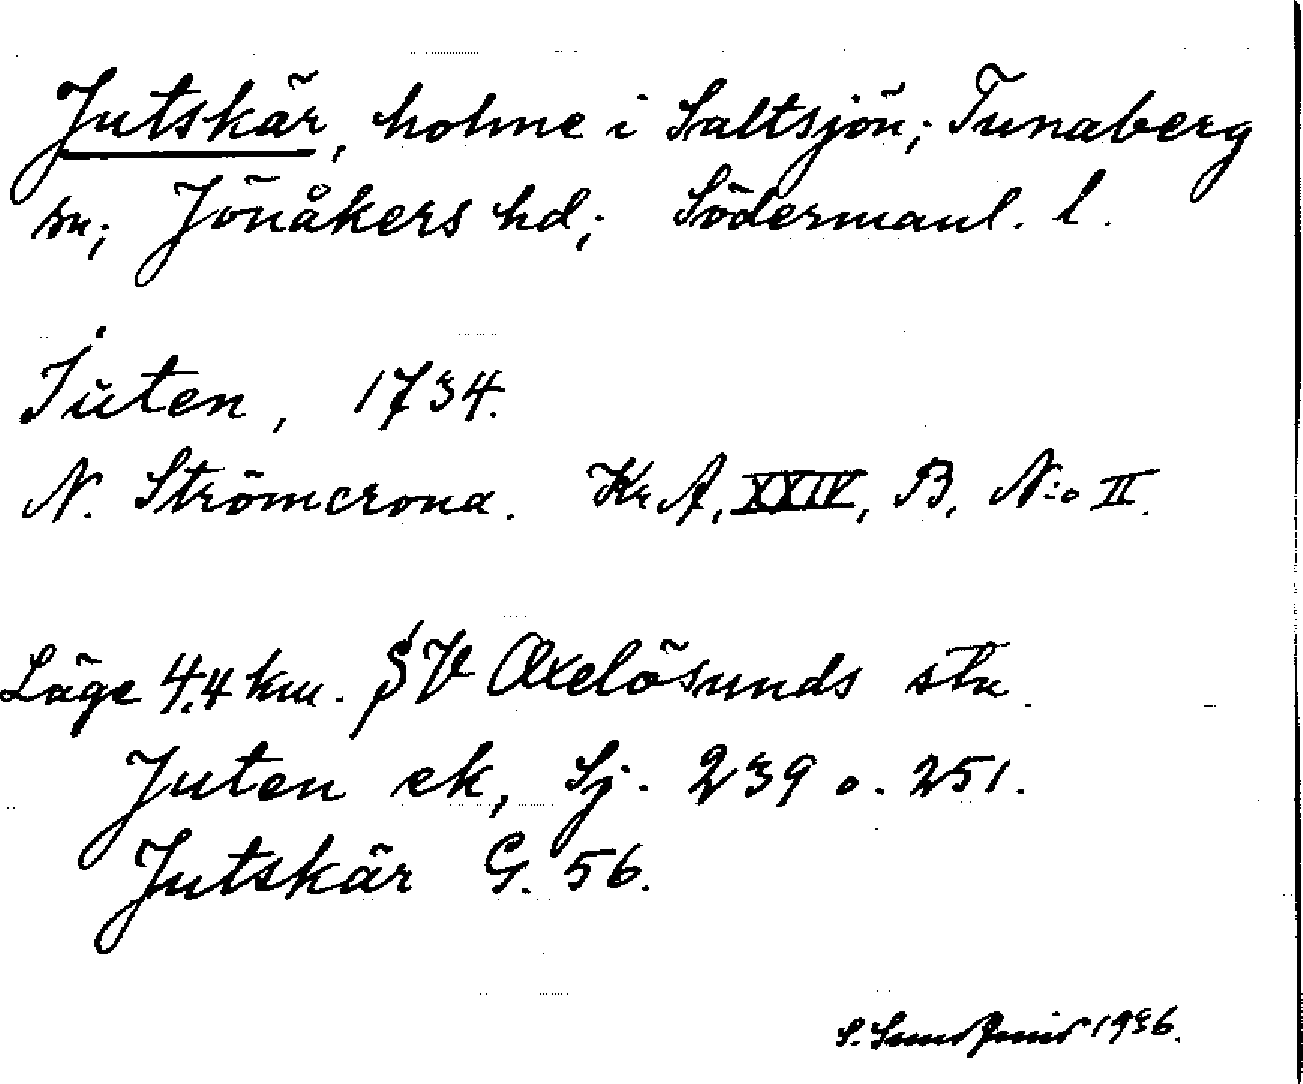 Jutskär, holme i Saltsjön; Tunaberg
sn; Jönåkers hd; Södermanl. l.
Juten, 1734.
N. Strömcrona. Kr A, XXIV, B, N:o II.
Läge 4,4 km. SV Oxelösunds stn.
Juten ek, Sj. 239 o. 251.
Jutskär G. 56.
S. 1936.